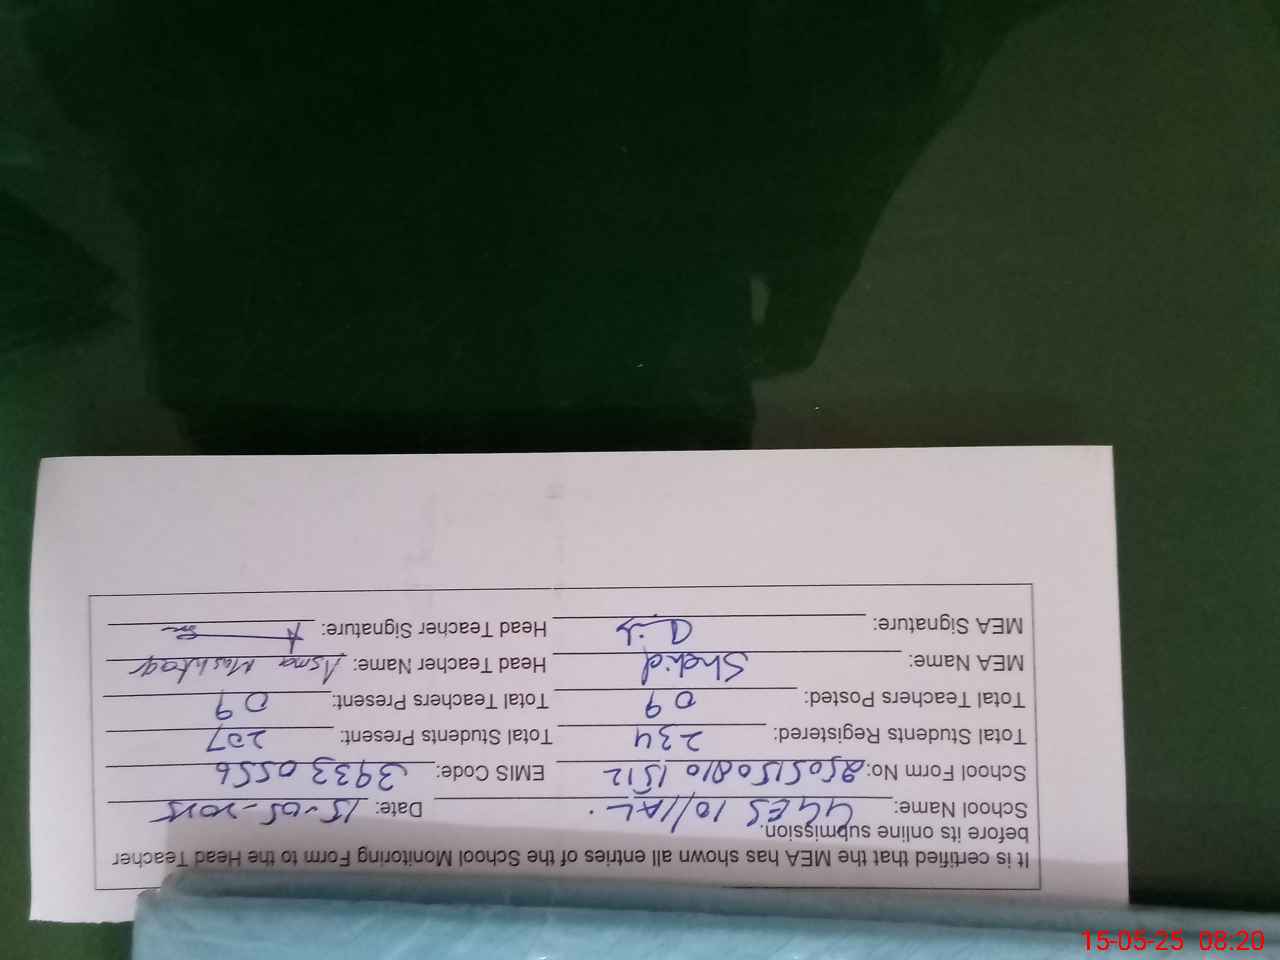 It is certified that the MEA has shown all entries of the School Monitoring Form to the Head Teacher
before its online submission.
School Name: GGES 10/11AL. Date: 15-05-2025
School Form No: 25051508101512 EMIS Code: 39330556
Total Students Registered: 234 Total Students Present: 207
Total Teachers Posted: 09 Total Teachers Present: 09
MEA Name: Shahid Head Teacher Name: Asma Mushtaq
MEA Signature: Head Teacher Signature:
15-05-25 08:20